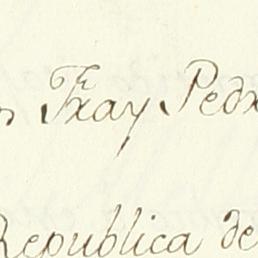 n Fray Pedr
Republica de